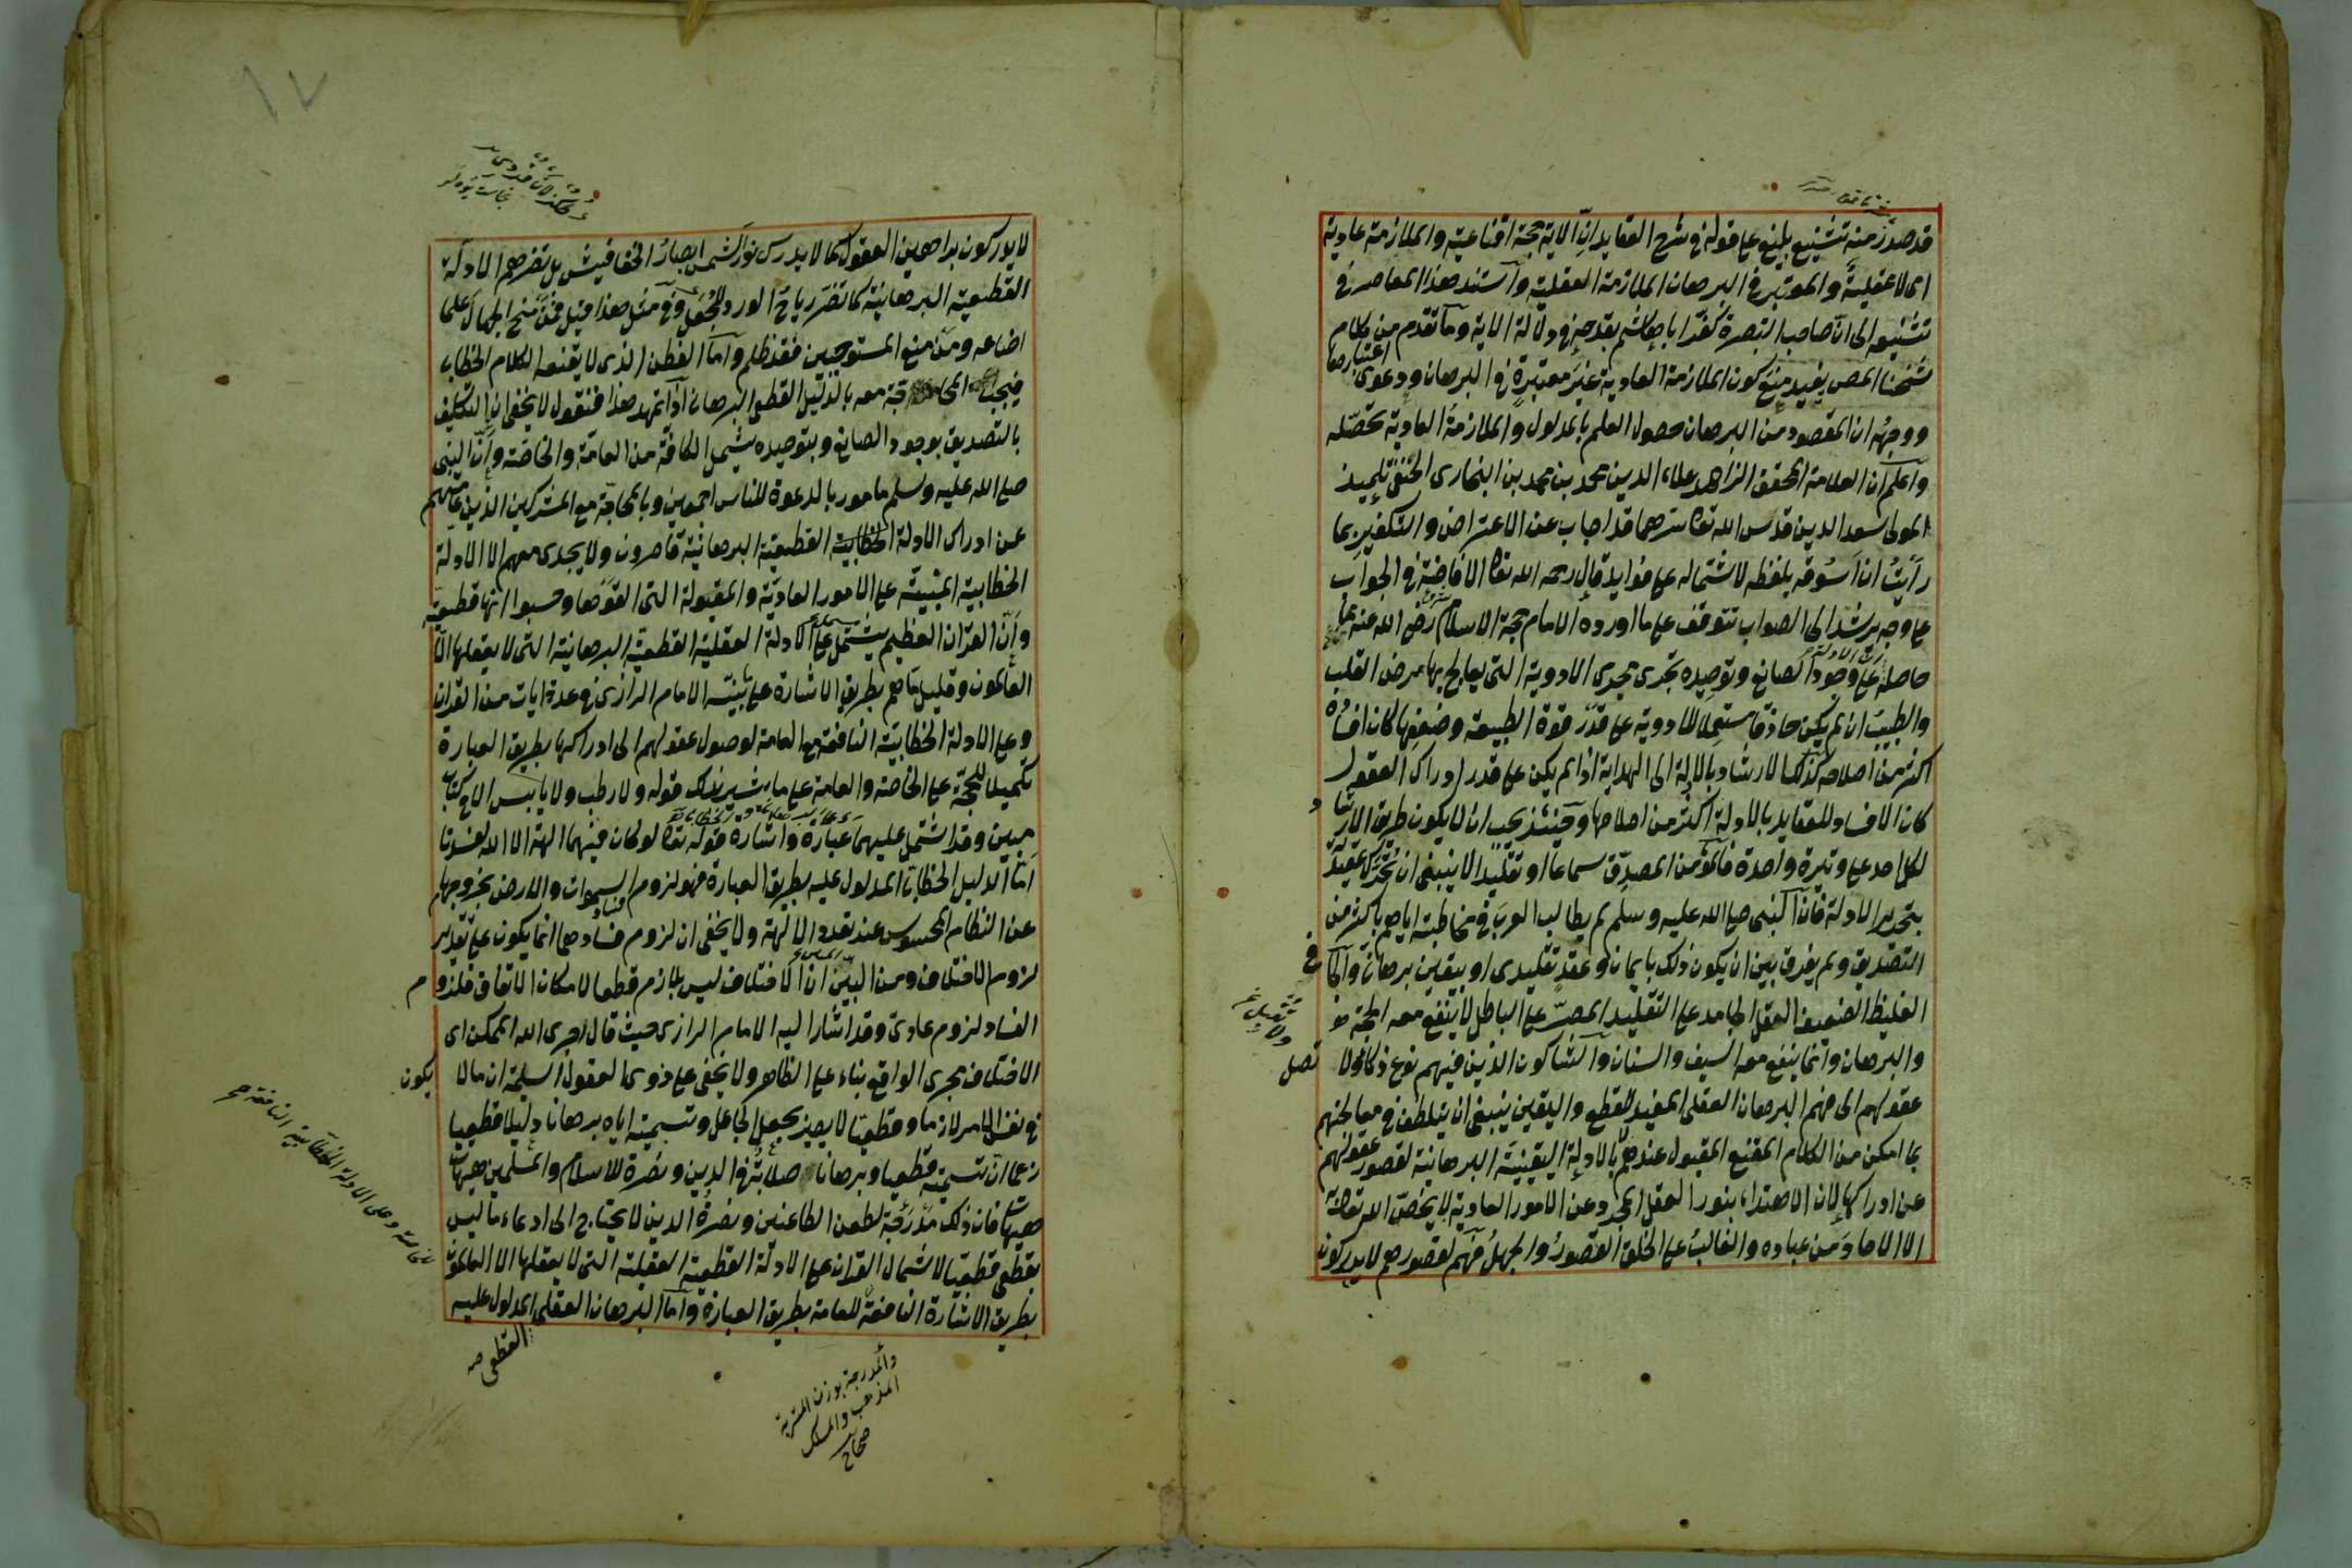 قد صدر منه تشنيع بليغ على قوله في شرح العقايد ان الآية حجة اقناعية والملازمة عادية
اى لا عقلية والمعتبر في البرهان الملازمة العقلية واستند هذا المعاصر في
تشنيعه الى ان صاحب التبصرة كفر ابا هاشم بقدحه في دلالة الاية وما تقدم من كلام
شيخنا المص يفيد منع كون الملازمة العادية غير معتبرة في البرهان ودعوى اعتبارها
ووجهه ان المقصود من البرهان حصول العلم بالمدلول والملازمة العادية تحصله
واعلم ان العلامة المحقق الزاهد علاء الدين محمد بن محمد بن البخارى الحنفي تلميذ
المولى سعد الدين قدس الله تعا سرهما قد اجاب عن الاعتراض والتكفير بما
رأيت ان اسوقه بلفظه لاشتماله على فوايد قال رحمه الله تعا الافاضة في الجواب
على وجه يرشد الى الصواب تتوقف على ما اورده الامام حجة الاسلام رضى الله عنه بما
حاصله ان الادلة على وجود الصانع وتوحيده تجرى مجرى الادوية التى يعالج بها مرض القلب
والطبيب ان لم يكن حاذقا مستعملا للادوية على قدر قوة الطبيعة وضعفها كان افساده
اكثر من اصلاحه كذلك الارشاد بالادلة الى الهداية اذا لم يكن على قدر ادراك العقول
كان الافساد للعقايد بالادلة اكثر من اصلاحها وحينئذ يجب ان لا يكون طريق الارشاد
لكل احد على وتيرة واحدة فالمؤمن المصدق سماعا او تقليدا لا ينبغى ان تحرك عقيدته
بتحرير الادلة فان النبى صلى الله عليه وسلم لم يطالب العرب في مخاطبته اياهم باكثر من
التصديق ولم يفرق بين ان يكون ذلك بايمان وعقد تقليدى او بيقين برهان والجافى
الغليظ الضعيف العقل الجامد على التقليد المصر على الباطل لا ينفع معه الحجة
والبرهان وانما ينفع معه السيف والسنان والشاكون الذين فيهم نوع ذكاء ولا تصل
عقولهم الى فهم البرهان العقلى المفيد للقطع واليقين ينبغى ان يتلطف في معالجتهم
بما امكن من الكلام المقنع المقبول عندهم لا بالادلة اليقينية البرهانية لقصور عقولهم
عن ادراكها لان الاهتداء بنور العقل المجرد عن الامور العادية لا يخص الله تعا به
الا الاحاد من عباده والغالب على الخلق القصور والجهل فهم لقصورهم لا يدركون
لا يدركون براهين العقول كما لا يدرك نور الشمس ابصار الخفافيش بل تضرهم الادلة
القطعية البرهانية كما تضر رياح الورد للجعل وفي مثل هذا قيل فمن منح الجهال علما
اضاعه ومن منع المستوجبين فقد ظلم واما الفطن الذى لا يقنعه الكلام الخطابى
فيجب المحاجة معه بالدليل القطعى البرهانى اذا تمهد هذا فنقول لا يخفى ان التكليف
بالتصديق بوجود الصانع وبتوحيده يشمل الكافة من العامة والخاصة وان النبى
صلى الله عليه وسلم مامور بالدعوة للناس اجمعين وبالمحاجة مع المشركين الذين عامتهم
عن ادراك الادلة الخطابية القطعية البرهانية قاصرون ولا يجدى معهم الا الادلة
الخطابية المبنية على الامور العادية والمقبولة التى الفوها وحسبوا انها قطعية
وان القران العظيم يشتمل على الادلة العقلية القطعية البرهانية التى لا يعقلها الا
العالمون وقليل ما هم بطريق الاشارة على ما بينه الامام الرازى في عدة ايات من القران
وعلى الادلة الخطابية النافعة مع العامة لوصول عقولهم الى ادراكها بطريق العبارة
تكميلا للحجة على الخاصة والعامة على ما يشير بذلك قوله ولا رطب ولا يابس الا في كتاب
مبين وقد اشتمل عليهما عبارة واشارة قوله تعا لو كان فيهما الهة الا الله لفسدتا
اما الدليل الخطابى المدلول عليه بطريق العبارة فهو لزوم فساد السموات والارض بخروجهما
عن النظام المحسوس عند تعدد الالهة ولا يخفى ان لزوم فسادهما انما يكون على تقدير
لزوم الاختلاف ومن البين ان الاختلاف ليس بلازم قطعا لامكان الاتفاق فلزوم
الفساد لزوم عادى وقد اشار اليه الامام الرازى حيث قال اجرى الله الممكن اى
الاختلاف مجرى الواقع بناء على الظاهر ولا يخفى على ذوى العقول السليمة ان ما لا يكون
في نفس الامر لازما وقطعيا لا يصير بجعل الجاعل وتسميته اياه برهانا دليلا قطعيا
زعما ان تسميته قطعيا وبرهانا صلابة في الدين ونصرة للاسلام والمسلمين هيهات
هيهات فان ذلك مدرجة لطعن الطاعنين ونصرة الدين لا يحتاج الى ادعاء ما ليس
بقطعى قطعيا لاشتمال القران على الادلة القطعية العقلية التى لا يعقلها الا العالمون
بطريق الاشارة النافعة للعامة بطريق العبارة واما البرهان العقلى المدلول عليه
القطعى صح
وعلى الادلة الخطابية النافعة صح
والمدرجة بوزن المتربة
المذهب والمسلك
صحاح
١٧